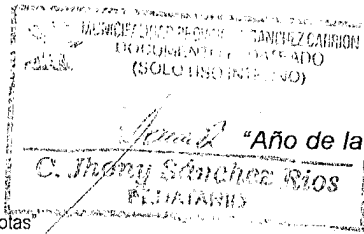 SANCHEZ CARRION
DOCUMENTO
(SOLO USO INTERNO)
"Año de la
C. Jhony Sánchez Rios
FEDATARIO
otas"